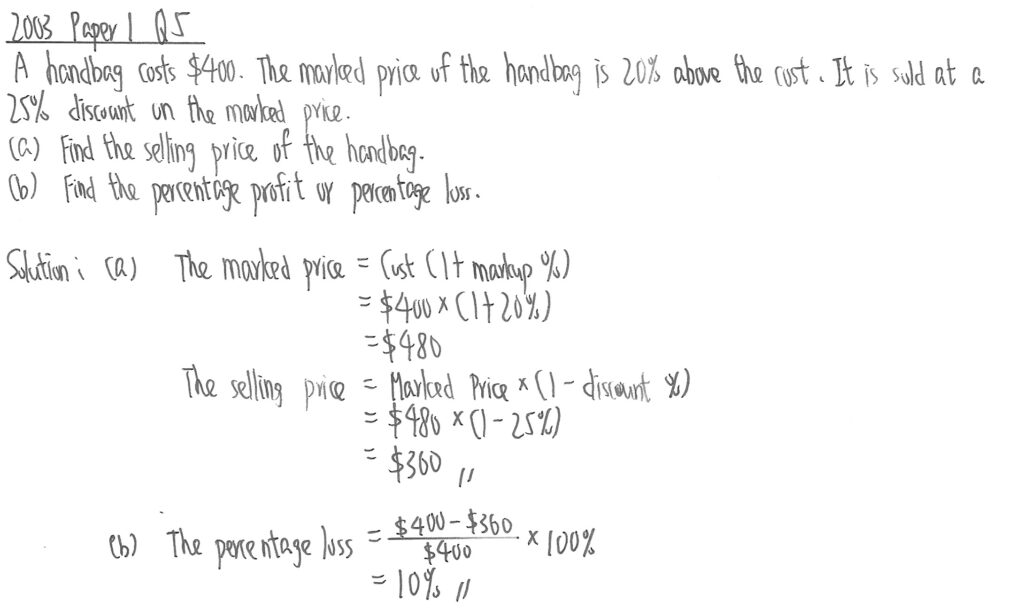 2003 Paper 1 Q5
A handbag costs $400. The marked price of the handbag is 20% above the cost. It is sold at a
25% discount on the marked price.
(a) Find the selling price of the handbag.
(b) Find the percentage profit or percentage loss.
Solution: (a) The marked price = Cost (1 + markup %)
= $400 × (1 + 20%)
= $480
The selling price = Marked Price × (1 - discount %)
= $480 × (1 - 25%)
= $360 //
(b) The percentage loss = $400 - $360 / $400 × 100%
= 10% //